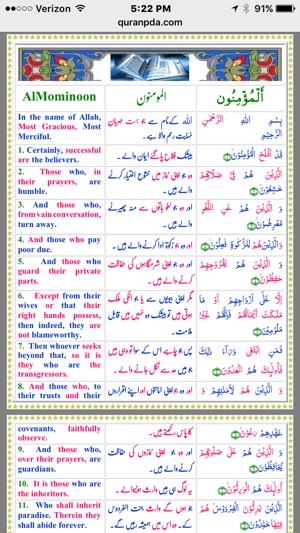 Verizon 5:22 PM 91%
quranpda.com
AlMominoon المومنون ٱلْمُؤْمِنُون
In the name of Allah, Most Gracious, Most Merciful.
اللہ کے نام سے جو بہت مہربان نہایت رحم والا ہے۔
بِسْمِ اللهِ الرَّحْمٰنِ الرَّحِيْمِ
1. Certainly, successful are the believers.
بیشک فلاح پاگئے ایمان والے۔
قَدْ اَفْلَحَ الْمُؤْمِنُوْنَ
2. Those who, in their prayers, are humble.
الَّذِيْنَ هُمْ فِيْ صَلَاتِهِمْ خٰشِعُوْنَ
3. And those who, from vain conversation, turn away.
وَ الَّذِيْنَ هُمْ عَنِ اللَّغْوِ مُعْرِضُوْنَ
4. And those who pay poor due.
اور وہ جو زکوٰۃ ادا کرنے والے ہیں۔
وَ الَّذِيْنَ هُمْ لِلزَّكٰوةِ فٰعِلُوْنَ
5. And those who guard their private parts.
اور وہ جو اپنی شرمگاہوں کی حفاظت کرنے والے ہیں۔
وَ الَّذِيْنَ هُمْ لِفُرُوْجِهِمْ حٰفِظُوْنَ
6. Except from their wives or that their right hands possess, then indeed, they are not blameworthy.
اِلَّا عَلٰٓى اَزْوَاجِهِمْ اَوْ مَا مَلَكَتْ اَيْمَانُهُمْ فَاِنَّهُمْ غَيْرُ مَلُوْمِيْنَ
7. Then whoever seeks beyond that, so it is they who are the transgressors.
فَمَنِ ابْتَغٰى وَرَآءَ ذٰلِكَ فَاُولٰٓئِكَ هُمُ الْعٰدُوْنَ
8. And those who, to their trusts and their
اور وہ جو اپنی امانتوں اور اپنے اقراروں
وَ الَّذِيْنَ هُمْ لِاَمٰنٰتِهِمْ وَ
covenants, faithfully observe.
کا پاس رکھتے ہیں۔
عَهْدِهِمْ رٰعُوْنَ
9. And those who, over their prayers, are guardians.
اور وہ جو اپنی نمازوں کی حفاظت کرنے والے ہیں۔
وَ الَّذِيْنَ هُمْ عَلٰى صَلَوٰتِهِمْ يُحَافِظُوْنَ
10. It is those who are the inheritors.
اُولٰٓئِكَ هُمُ الْوٰرِثُوْنَ
11. Who shall inherit paradise. Therein they shall abide forever.
الَّذِيْنَ يَرِثُوْنَ الْفِرْدَوْسَ هُمْ فِيْهَا خٰلِدُوْنَ